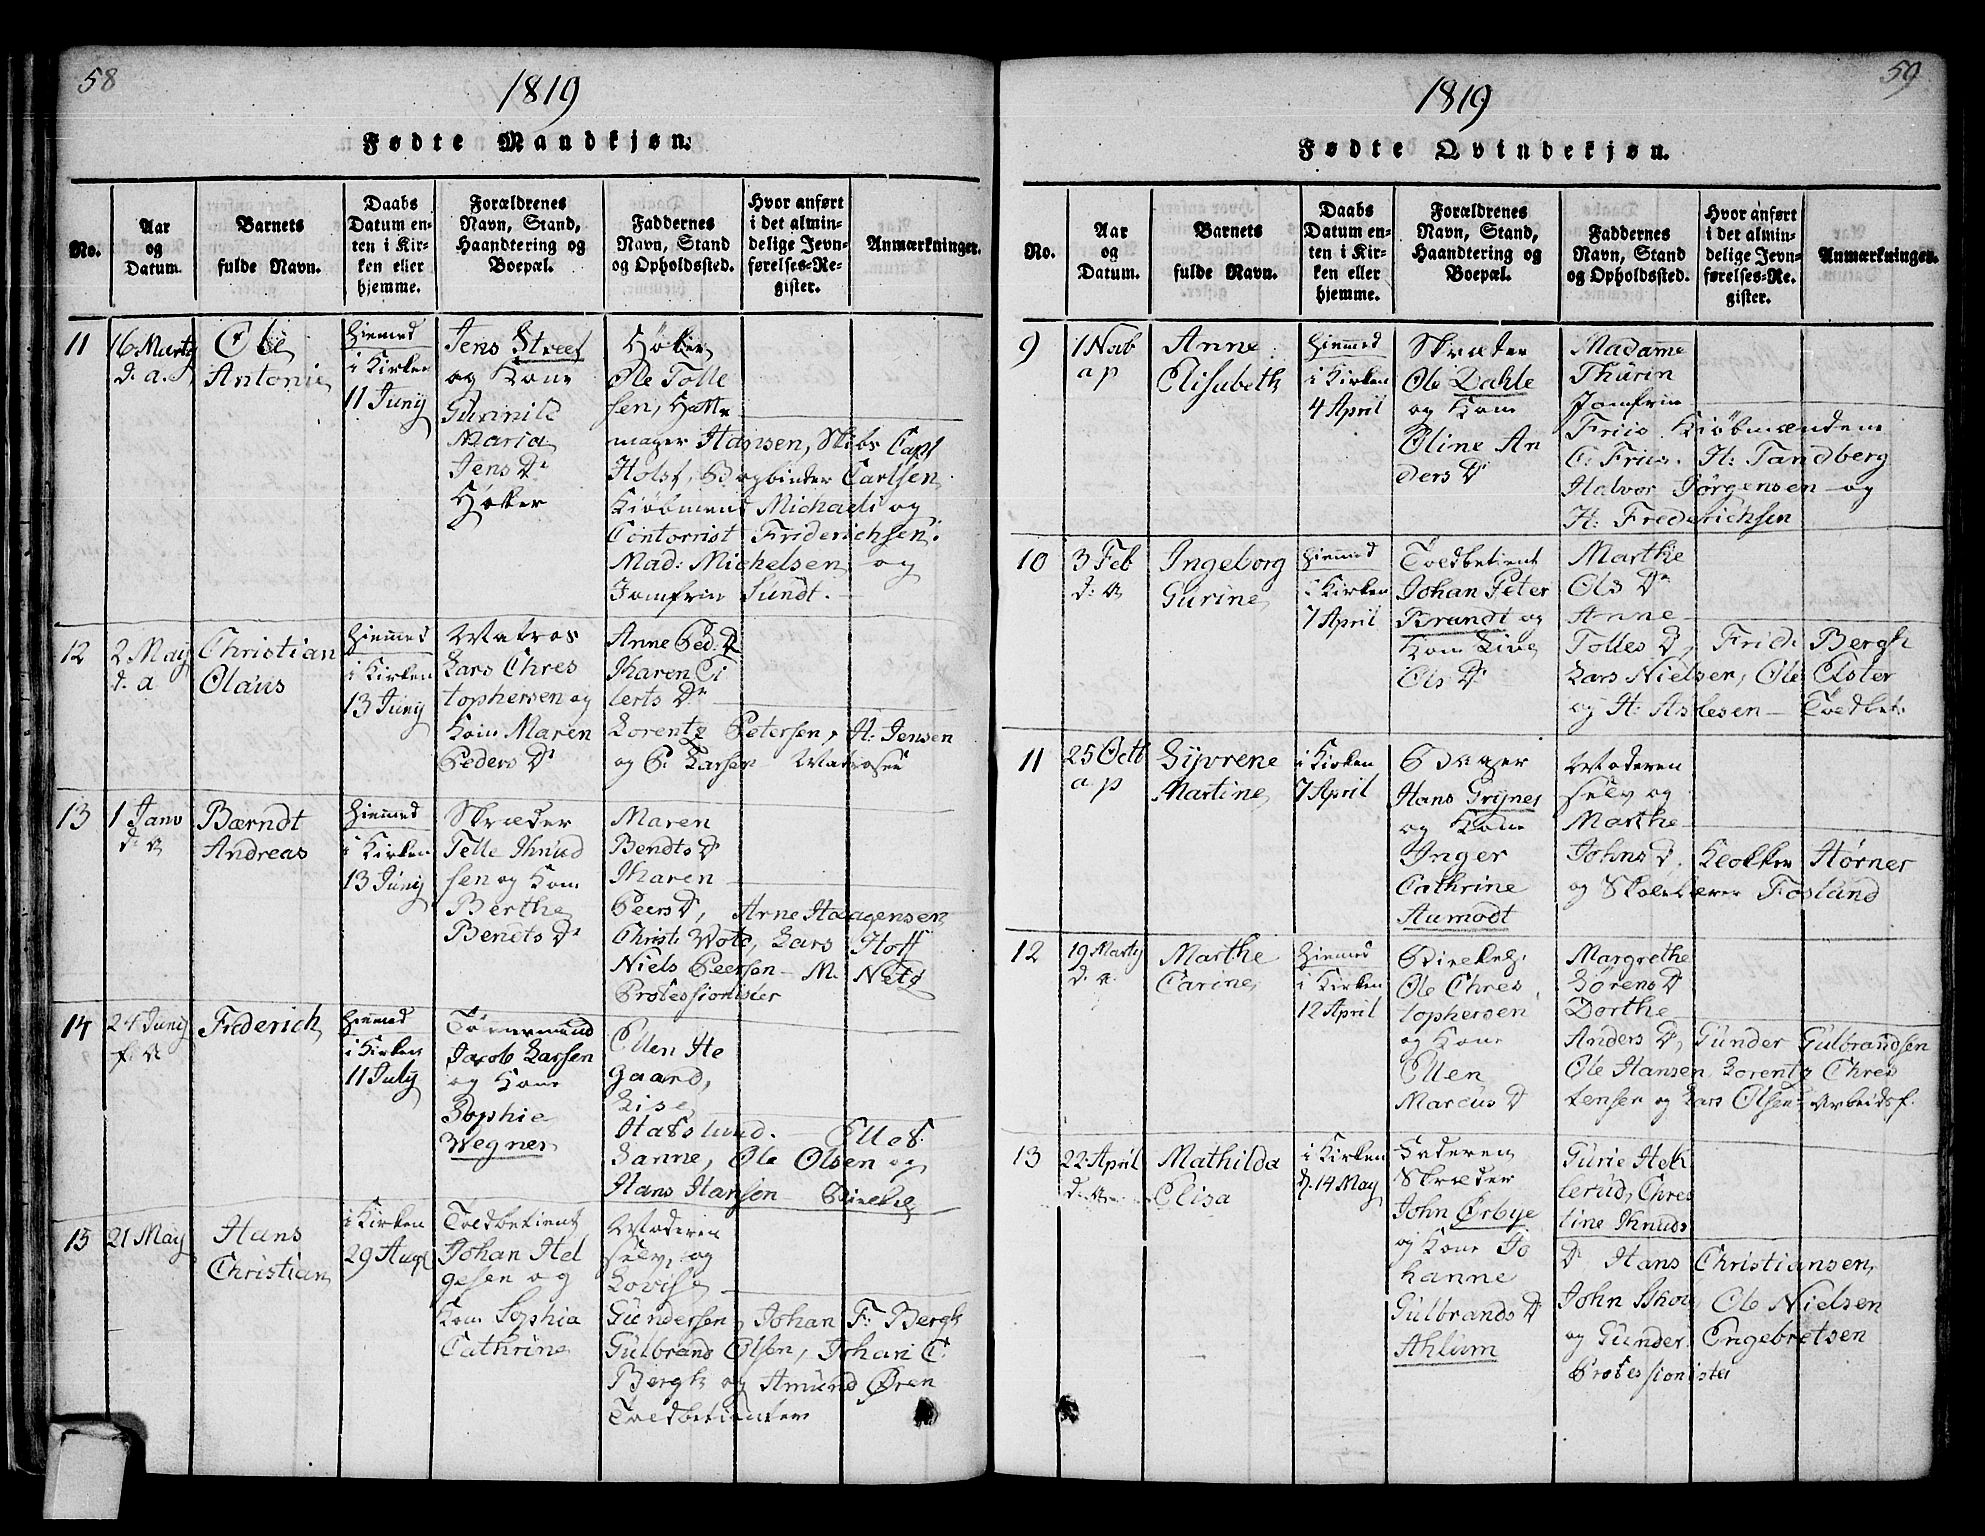 58
1819
Fødte Mandkjøn.
No.
Aar og Datum.
Barnets fulde Navn.
Daabs Datum enten i Kirken eller hjemme.
Forældrenes Navn, Stand, Haandtering og Boepæl.
Faddernes Navn, Stand og Opholdssted.
Hvor anført i det almindelige Jevnførelses-Register.
Anmærkninger.
11
16 Marty
d. a.
Ole
Antoni
Hiemmed
i Kirken
11 Junij
Jens Street
og Kone
Gunnild
Maria
Jens Dr
Høker
Høker
Ole Tolle
sen, Hatte
mager Hansen, Skibs Capt
Holst, Bogbinder Carlsen
Kiöbmend Michael og
Contorrist Friderichsen:
Mad: Michelsen og
Jomfrue Sundt.
12
2 May
d. a
Christian
Olaus
Hiemmed
i Kirken
13 Junij
Matros
Lars Chres
tophersen og
Kone Maren
Peders Dr
Anne Ped: Dr
Karen Ei
lerts Dr
Lorentz Petersen, H: Jensen
og P: Larsen Matroser
13
1 Janv
d: a
Bærndt
Andreas
Hiemmed
i Kirken
13 Junij
Skræder
Telle Knud
sen og Kone
Berthe
Bendts Dr
Maren
Bendts Dr
Karen
Peers Dr, Arne Haagensen
Christ: Wold, Lars Hoff
Niels Peersen M. Netz
Professionister
14
24 Junij
f: a
Friderich
Hiemmed
i Kirken
11 July
Tømmermand
Jacob Larsen
og Kone
Sophie
Wegner
Ellen He
gaard,
Lise
Hafslund.
Sanne, Ole Olsen og
Hans Hansen
15
21 May
Hans
Christian
i Kirken
29 Aug
Toldbetient
Johan Hel
gesen og
Kone Sophia
Cathrine
Moderen
selv, og
Lovise
Gundersen, Johan F: Bergh
Gulbrand Olsen, Johan C:
Bergh og Amund Øren
Toldbetienter
59
1819
Fødte Qvindekjøn.
No.
Aar og Datum.
Barnets fulde Navn.
Daabs Datum enten i Kirken eller hjemme.
Forældrenes Navn, Stand, Haandtering og Boepæl.
Faddernes Navn, Stand og Opholdssted.
Hvor anført i det almindelige Jevnførelses-Register.
Anmærkninger.
9
1 Nov
a p
Anne
Elisabeth
Hiemmed
i Kirken
4 April
Skræder
Ole Dahle
og Kone
Oline An
ders Dr
Madame
Thurin
Jomfrue
Friis Kiöbmændene
C: Friis. H: Tandberg
Halvor Jörgensen og
H: Frederichsen
10
3 Feb
d: a
Ingeborg
Gurine
Hiemmed
i Kirken
7 April
Toldbetient
Johan Peter
Brandt og
Kone Live
Ols Dr
Marthe
Ols Dr
Anne
Tolles Dr, Frid: Bergh
Lars Nielsen, Ole Elster
og H: Aslesen Toldbet:
11
25 Octb
a p
Syvrene
Martine
i Kirken
7 April
Bager
Hans Grijner
og Kone
Inger
Cathrine
Aamodt
Moderen
selv og
Marthe
Johns Dr. Klokker Hörner
og Skolelærer Fosland
12
19 Marty
d. a.
Marthe
Carine
Hiemmed
i Kirken
12 April
Ole Chres
tophersen
og Kone
Ellen
Marcus Dr
Margrethe
Sörens Dr
Dorthe
Anders Dr, Gunder Gulbrandsen
Ole Hansen Lorentz Chres
tensen og Lars Olsen Arbeidsf.
13
22 April
d: a
Mathilda
Elisa
i Kirken
d. 14 May
Faderen
Skræder
John Ørbye
og Kone Jo
hanne
Gulbrands Dr
Ahlum
Gurie Hek
lerud, Chres
tine Knuds
Dr Hans Christiansen,
John Skou, Ole Nielsen
og Gunder Engebretsen
Professionister